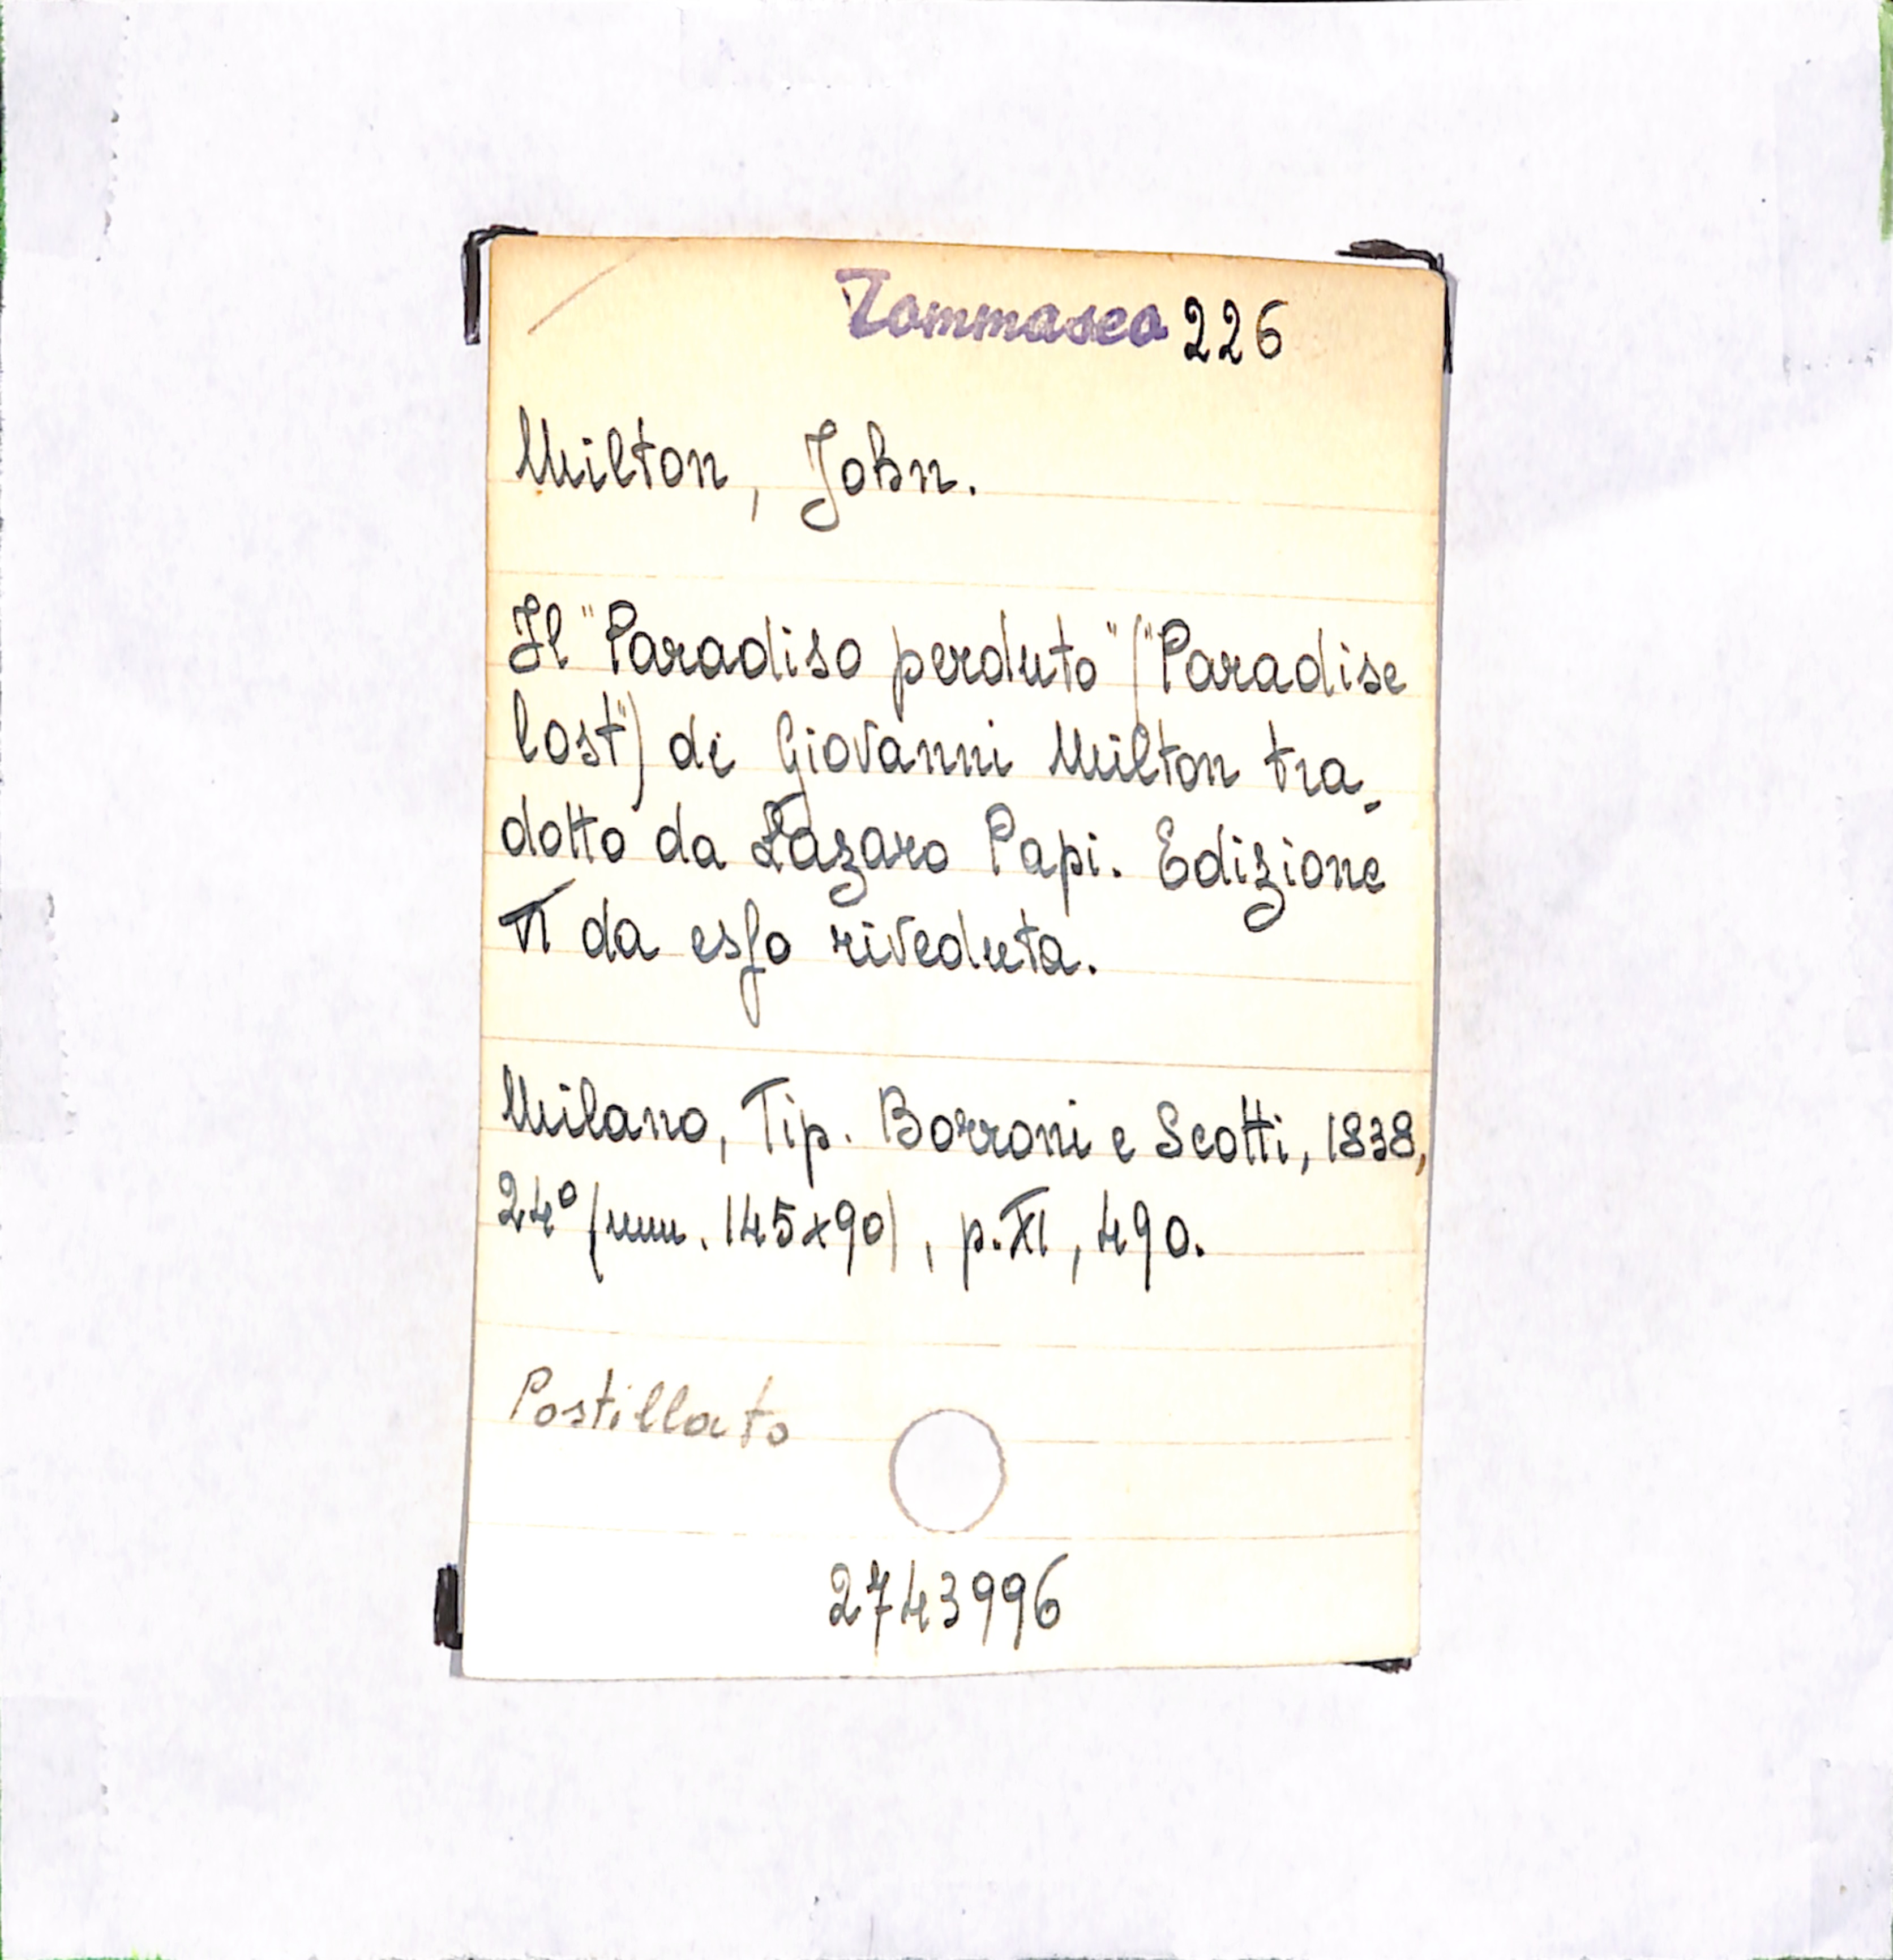 Tommaseo 226
Milton, John.
Il "Paradiso perduto" ("Paradise
lost") di Giovanni Milton tra-
dotto da Lazaro Papi. Edizione
VI da esſo riveduta.
Milano, Tip. Borroni e Scotti, 1838,
24° (mm. 145x90), p. XI, 490.
Postillato
2743996